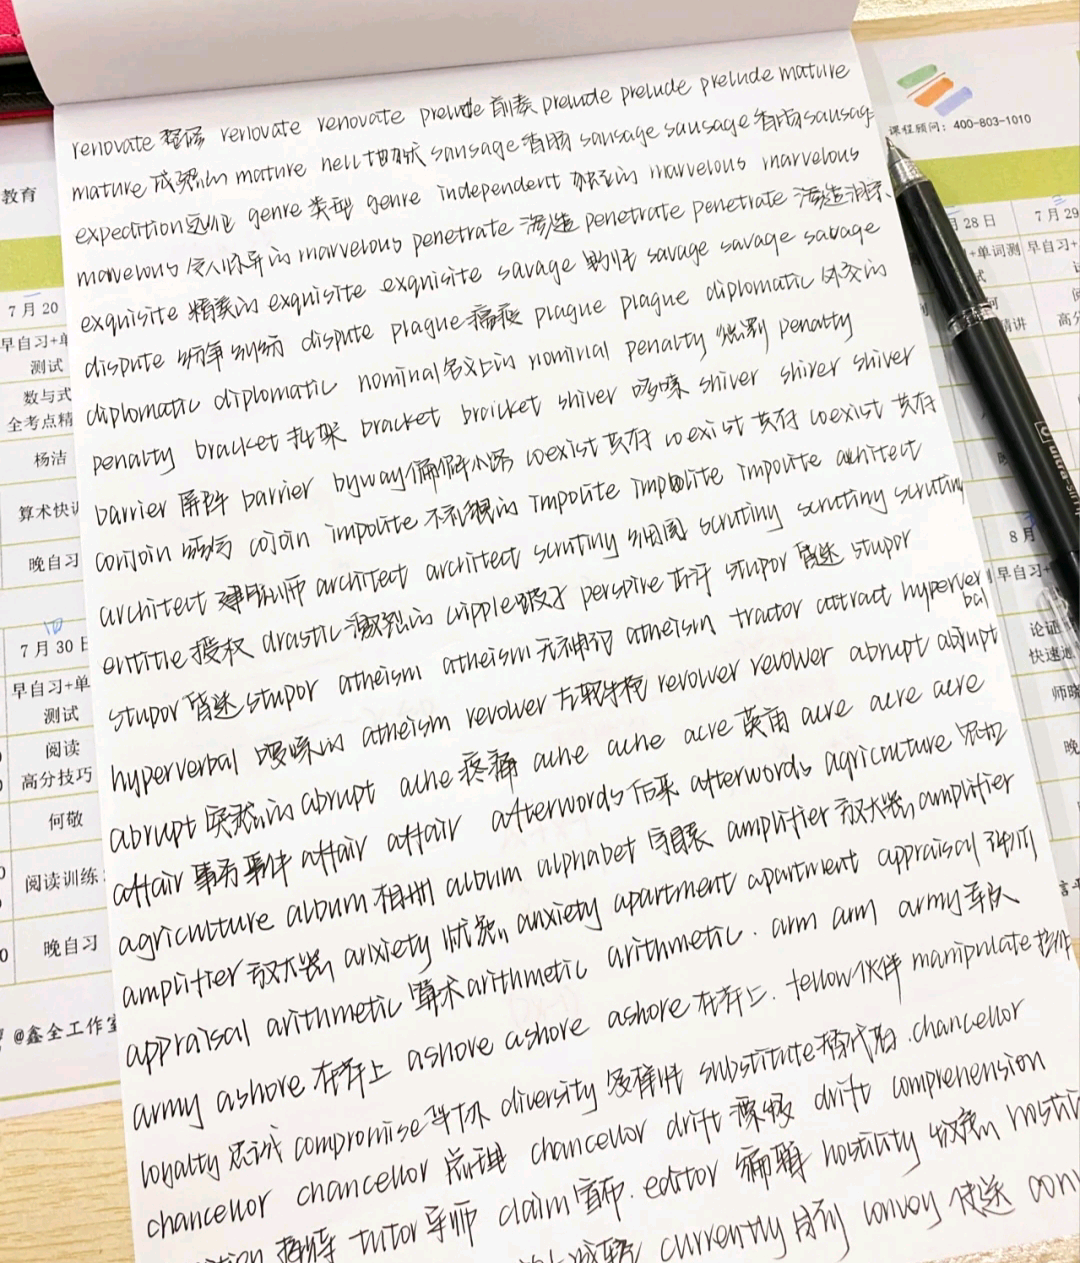 renovate 整修 renovate renovate prelude 前奏 prelude prelude prelude mature
mature 成熟的 mature nell sausage 香肠 sausage sausage 香肠 sausag
expedition 远征 genre 类型 genre independent 独立的 marvelous marvelous
marvelous 令人惊异的 marvelous penetrate 渗透 penetrate penetrate 渗透
exquisite 精美的 exquisite exquisite savage savage savage savage
dispute 纷争 纠纷 dispute plague 瘟疫 plague plague diplomatic 外交的
diplomatic diplomatic nominal 名义上的 nominal penalty 惩罚 penalty
penalty bracket 托架 bracket bracket shiver 哆嗦 shiver shiver shiver
barrier 屏障 barrier byway 偏僻小路 coexist 共存 coexist 共存 coexist 共存
conjoin 结合 cojoin impolite 不礼貌的 impolite impolite impolite architect
architect 建筑师 architect architect scrutiny 细阅 scrutiny scrutiny scrutin
entitle 授权 drastic 激烈的 cripple 跛子 perspire 出汗 stupor 昏迷 stupor
stupor 昏迷 stupor atheism atheism 无神论 atheism tractor attract hyperver
bal
hyperverbal atheism revolver 左轮手枪 revolver revolver abrupt abrupt
abrupt 突然的 abrupt ache 疼痛 ache ache acre 英亩 acre acre acre
affair 事务 事件 affair affair afterwords 后来 afterwords agriculture 农业
agriculture album 相册 album alphabet 字母表 amplifier 放大器 amplifier
amplifier 放大器 anxiety 忧虑 anxiety apartment apartment appraisal
appraisal arithmetic 算术 arithmetic arithmetic. arm arm army 军队
army ashore 在岸上 ashore ashore ashore 在岸上. fellow 伙伴 manipulate 操作
loyalty 忠诚 compromise 妥协 diversity 多样性 substitute 替代品. chancellor
chancellor chancellor 总理 chancellor drift 漂移 drift comprehension
tutor 导师 claim 宣布. editor 编辑 hostility 敌意 hostili
currently 目前 convoy 护送 con
课程顾问: 400-803-1010
教育
7月20
早自习+单
测试
数与式
全考点精
杨洁
算术快训
晚自习
7月30日
早自习+单
测试
阅读
高分技巧
何敬
阅读训练
晚自习
@鑫全工作室
月28日
7月29
+单词测
试
早自习+
精讲
高分
8月
早自习+
论证
快速
师晓
晚